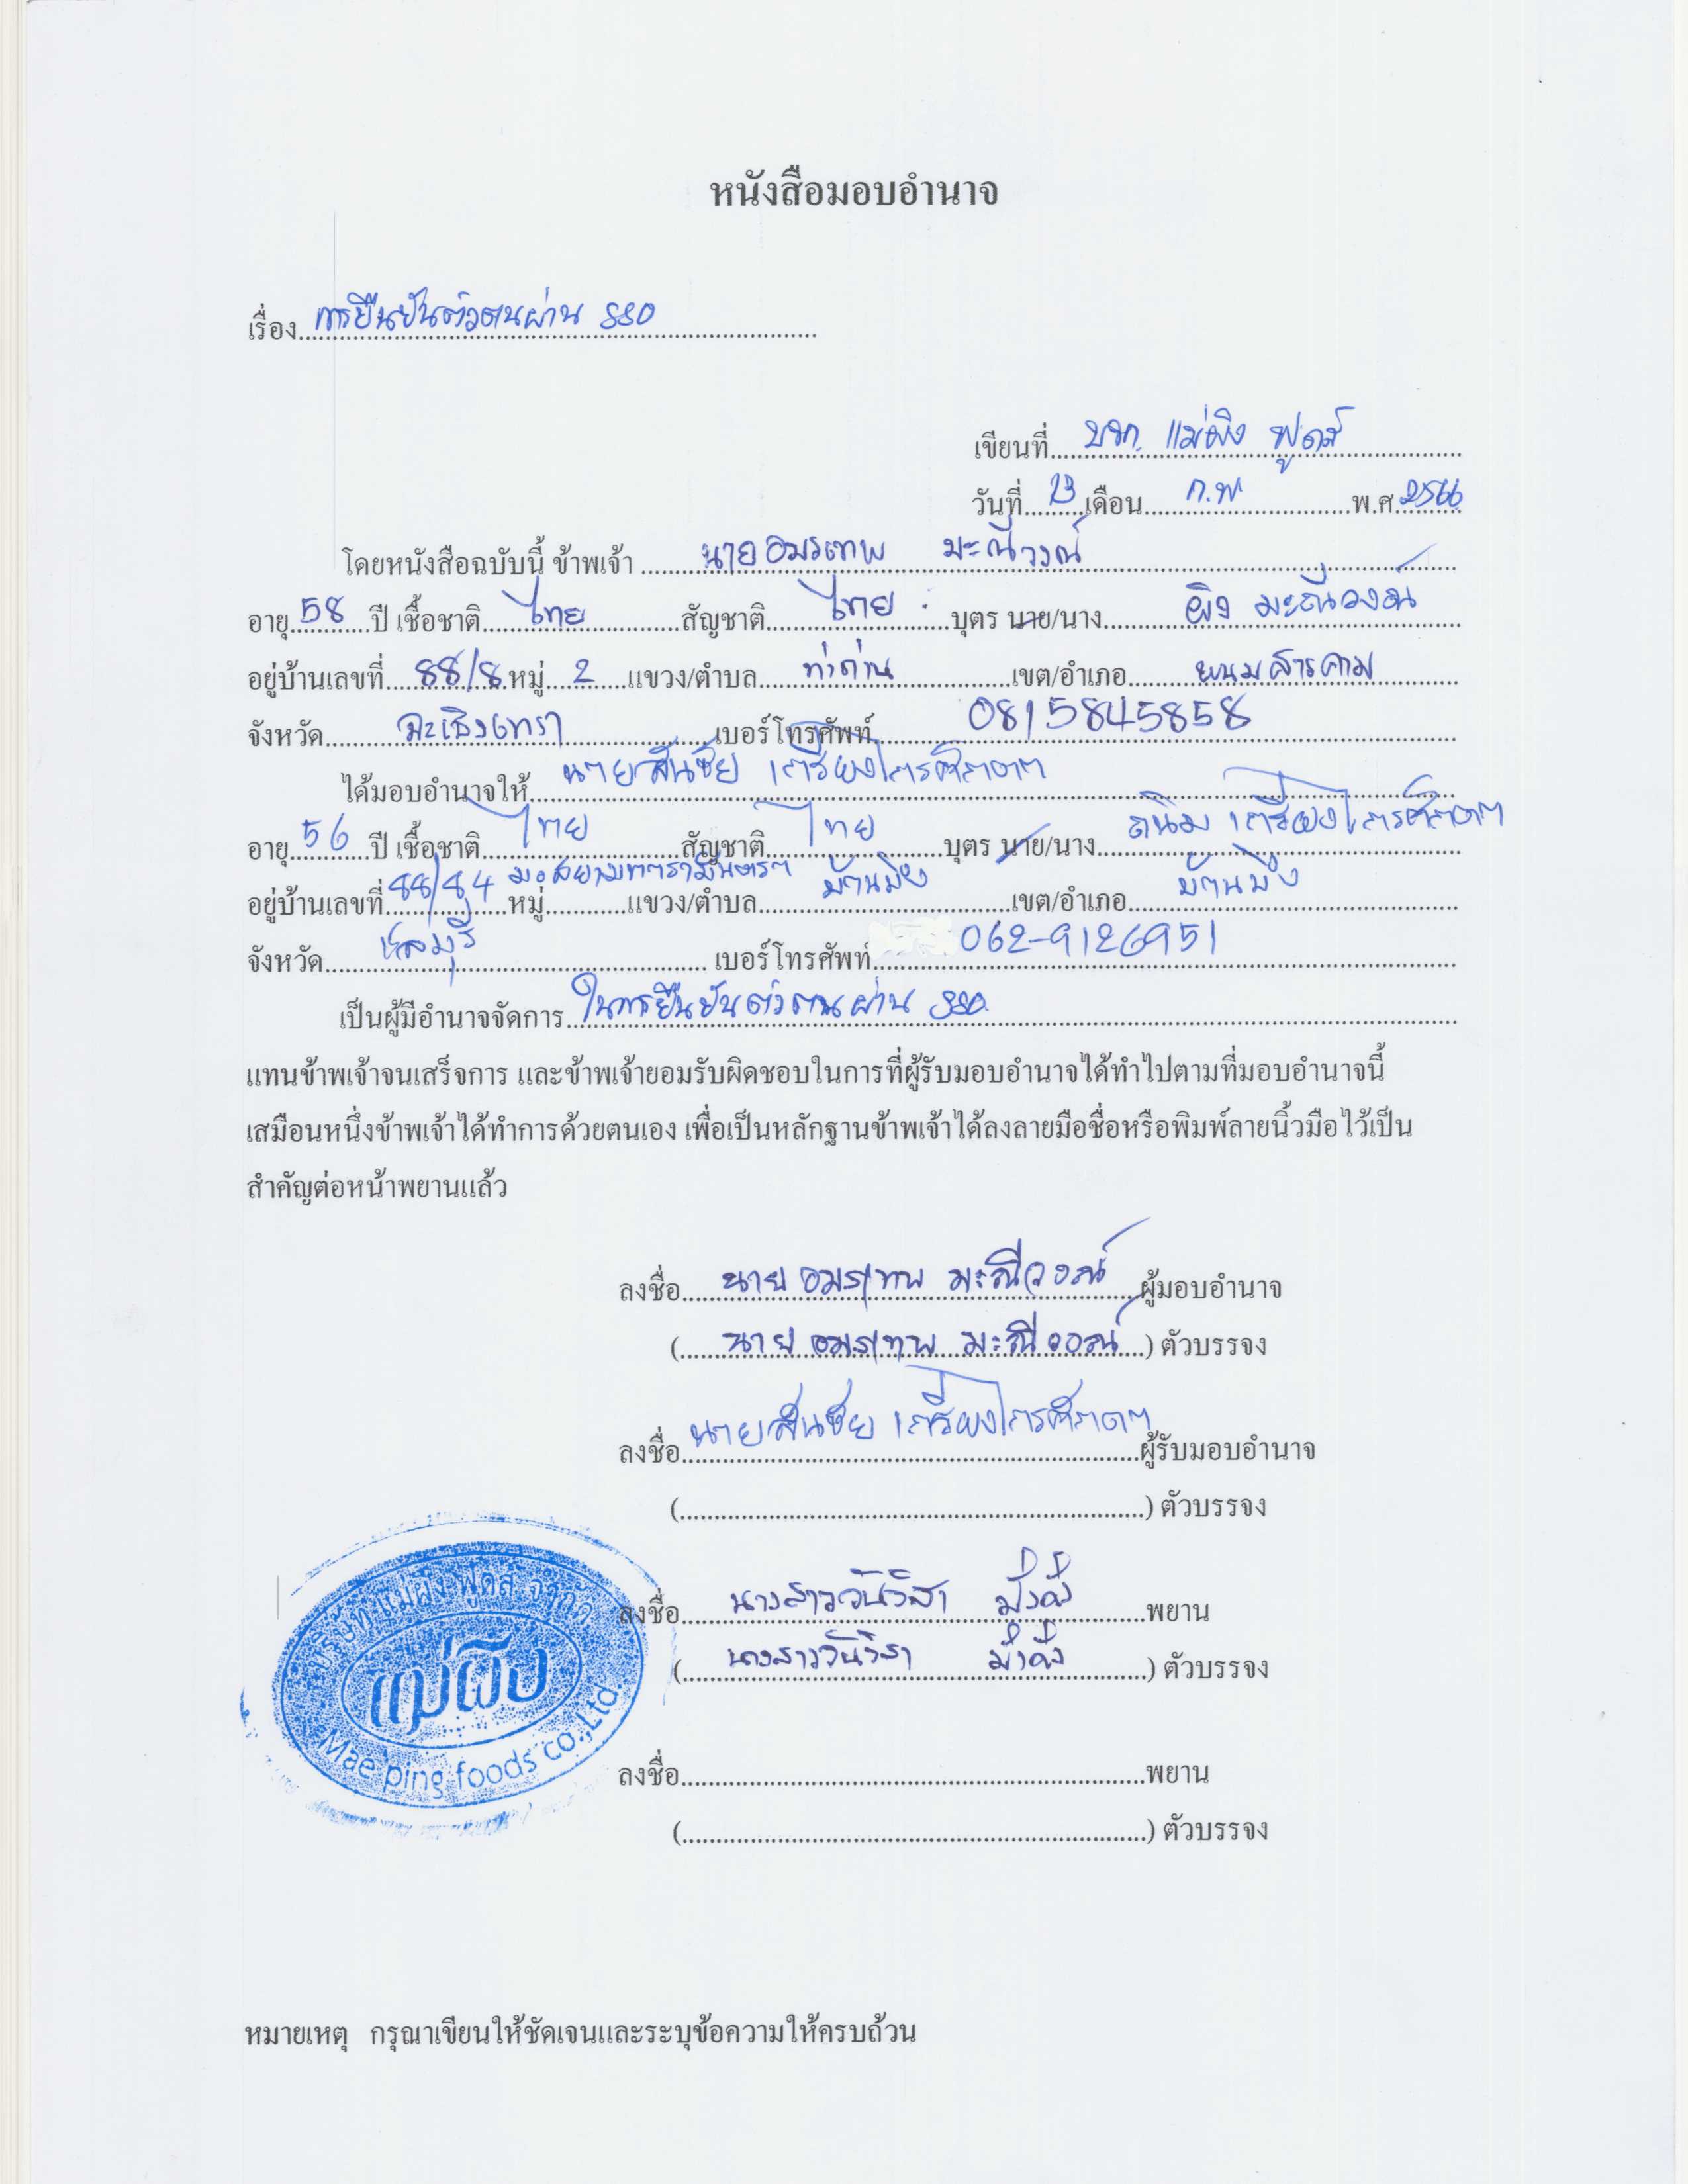 หนังสือมอบอำนาจ
เรื่อง การยืนยันตัวตนผ่าน SSO
เขียนที่ บจก. แม่ผึง ฟูดส์
วันที่ 13 เดือน ก.พ พ.ศ. 2566
โดยหนังสือฉบับนี้ ข้าพเจ้า นายอมรเทพ มะณีวงณ์
อายุ 58 ปี เชื้อชาติ ไทย สัญชาติ ไทย บุตร นาย/นาง ผิง มะณีวงณ์
อยู่บ้านเลขที่ 88/8 หมู่ 2 แขวง/ตำบล ท่าถ่าน เขต/อำเภอ พนมสารคาม
จังหวัด ฉะเชิงเทรา เบอร์โทรศัพท์ 0815845858
ได้มอบอำนาจให้ นายสันชัย
อายุ 56 ปี เชื้อชาติ ไทย สัญชาติ ไทย บุตร นาย/นาง
อยู่บ้านเลขที่ 88/84 หมู่ แขวง/ตำบล บ้านบึง เขต/อำเภอ บ้านบึง
จังหวัด ชลบุรี เบอร์โทรศัพท์ 062-9126951
เป็นผู้มีอำนาจจัดการ ในการยืนยันตัวตนผ่าน SSO
แทนข้าพเจ้าจนเสร็จการ และข้าพเจ้ายอมรับผิดชอบในการที่ผู้รับมอบอำนาจได้ทำไปตามที่มอบอำนาจนี้
เสมือนหนึ่งข้าพเจ้าได้ทำการด้วยตนเอง เพื่อเป็นหลักฐานข้าพเจ้าได้ลงลายมือชื่อหรือพิมพ์ลายนิ้วมือไว้เป็น
สำคัญต่อหน้าพยานแล้ว
ลงชื่อ นาย อมรเทพ มะณีวงณ์ ผู้มอบอำนาจ
( นาย อมรเทพ มะณีวงณ์ ) ตัวบรรจง
ลงชื่อ นายสันชัย ผู้รับมอบอำนาจ
( ) ตัวบรรจง
ลงชื่อ นางสาววันวิสา มั่งคั่ง พยาน
( นางสาววันวิสา มั่งคั่ง ) ตัวบรรจง
บริษัท แม่ผึง ฟูดส์ จำกัด
แม่ผึง
Mae ping foods co.,Ltd.
ลงชื่อ พยาน
( ) ตัวบรรจง
หมายเหตุ กรุณาเขียนให้ชัดเจนและระบุข้อความให้ครบถ้วน